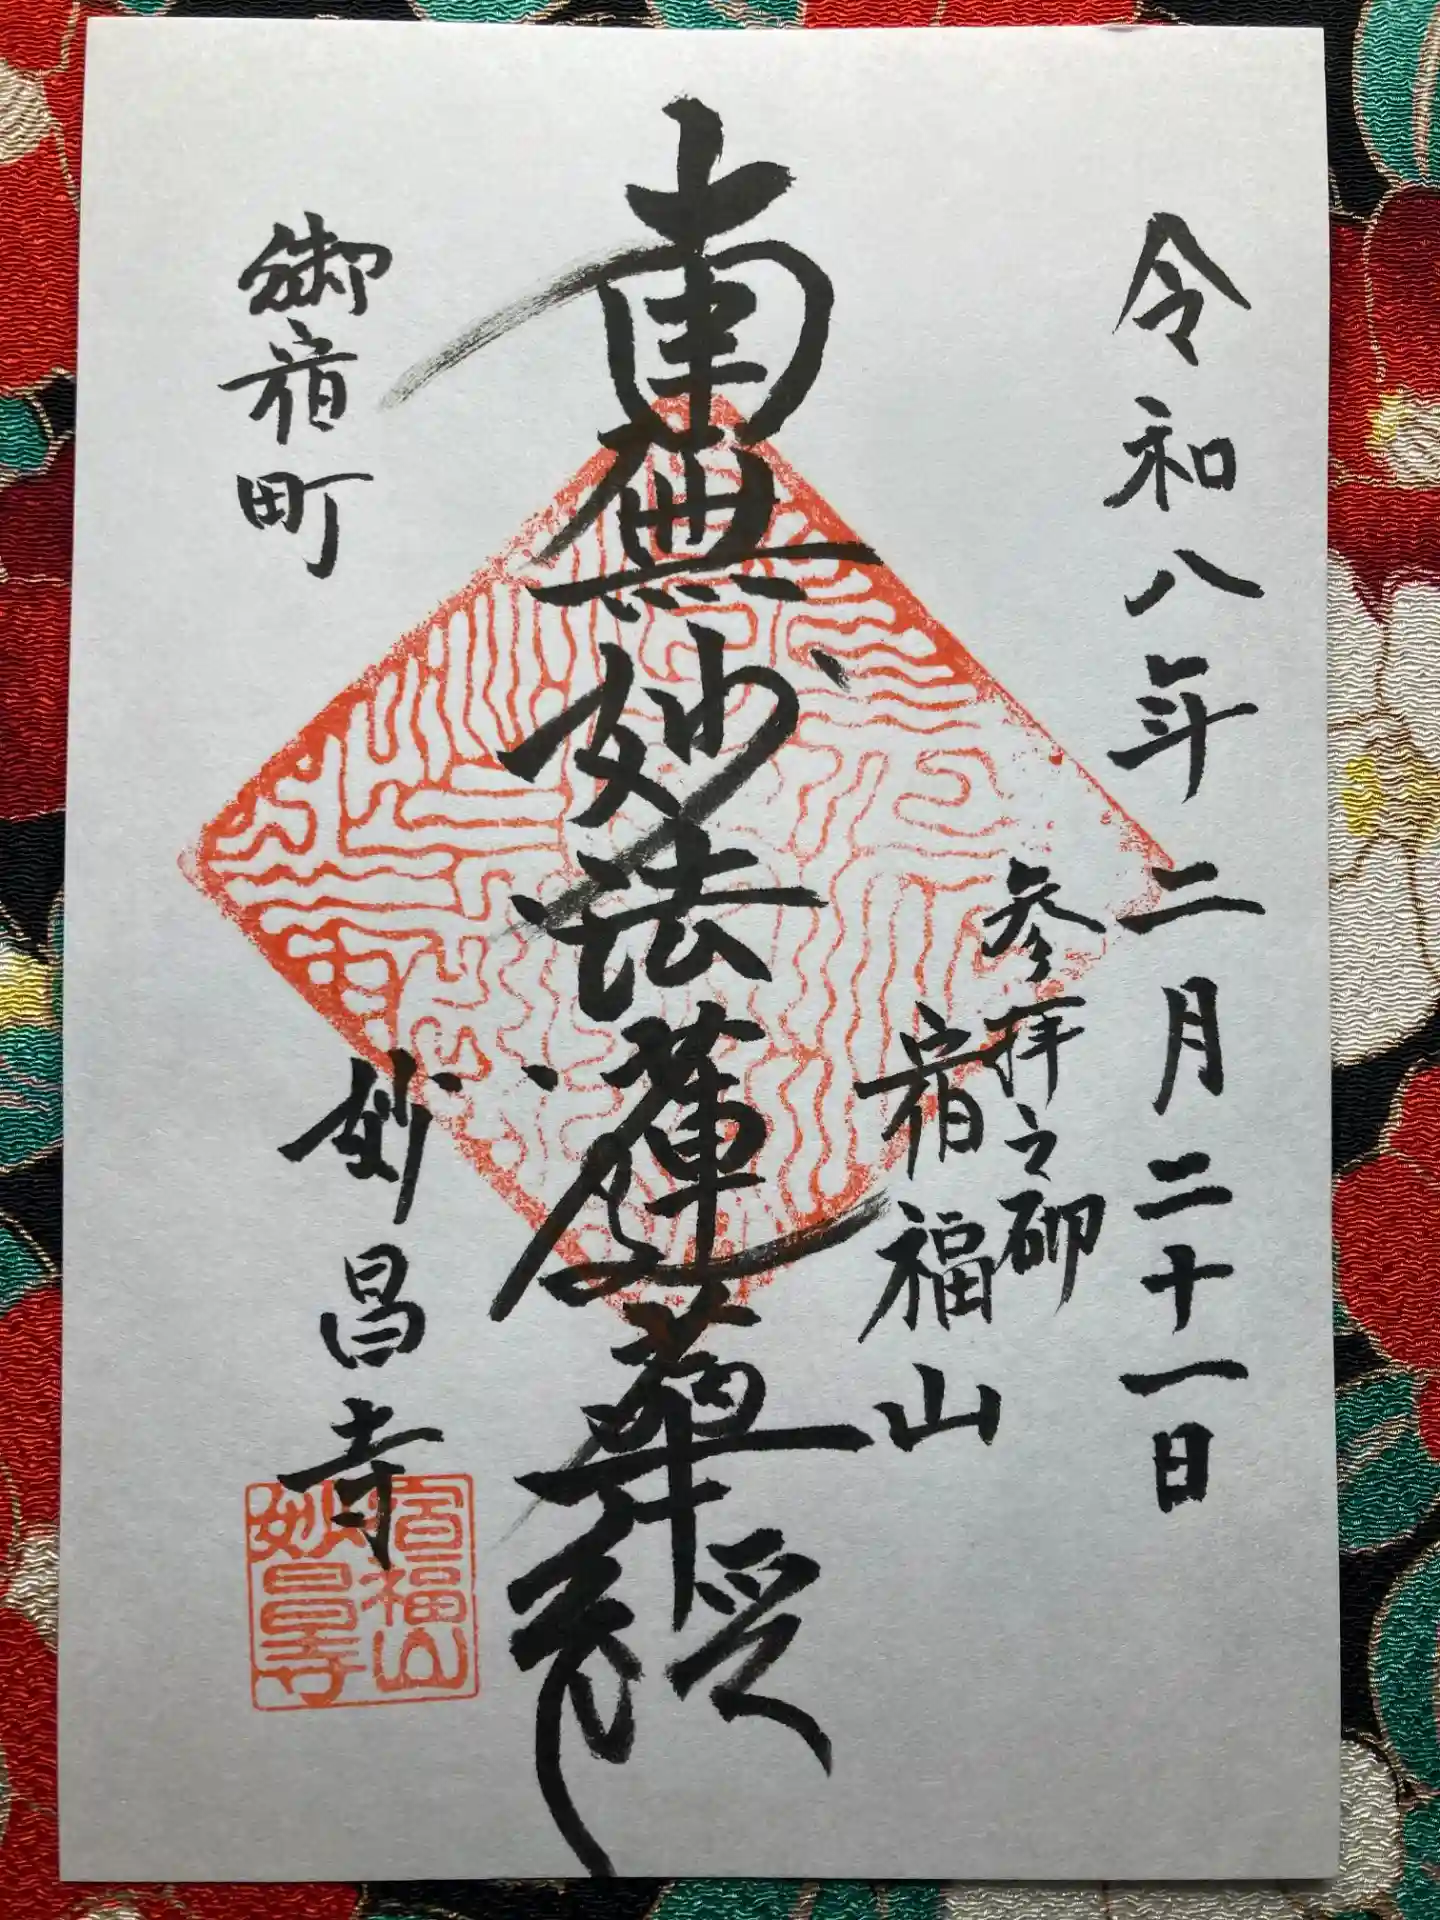 令和八年二月二十一日
参拝之砌
宿福山
南無妙法蓮華
授
御宿町
妙昌寺
宿福山
妙昌寺